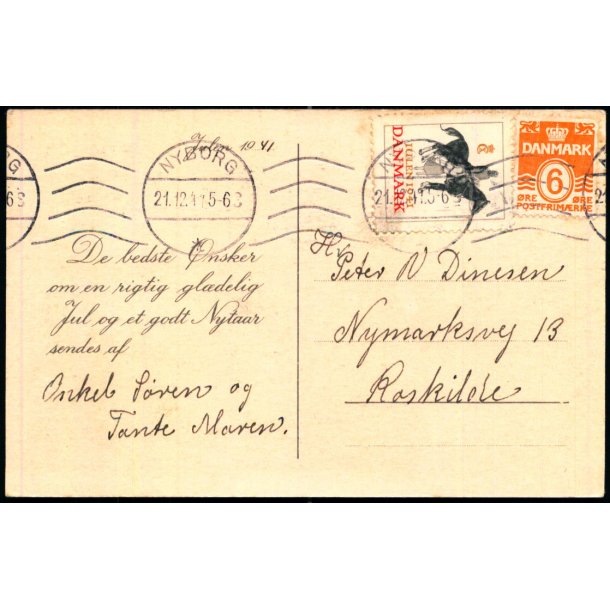 Julen 1941
NYBORG
21.12.41 5-6S
JULEN 1941
DANMARK
DANMARK
6
ØRE ØRE
POSTFRIMÆRKE
De bedste Ønsker
om en rigtig glædelig
Jul og et godt Nytaar
sendes af
Onkel Søren og
Tante Maren.
Hr.
Peter N Dinesen
Nymarksvej 13
Roskilde